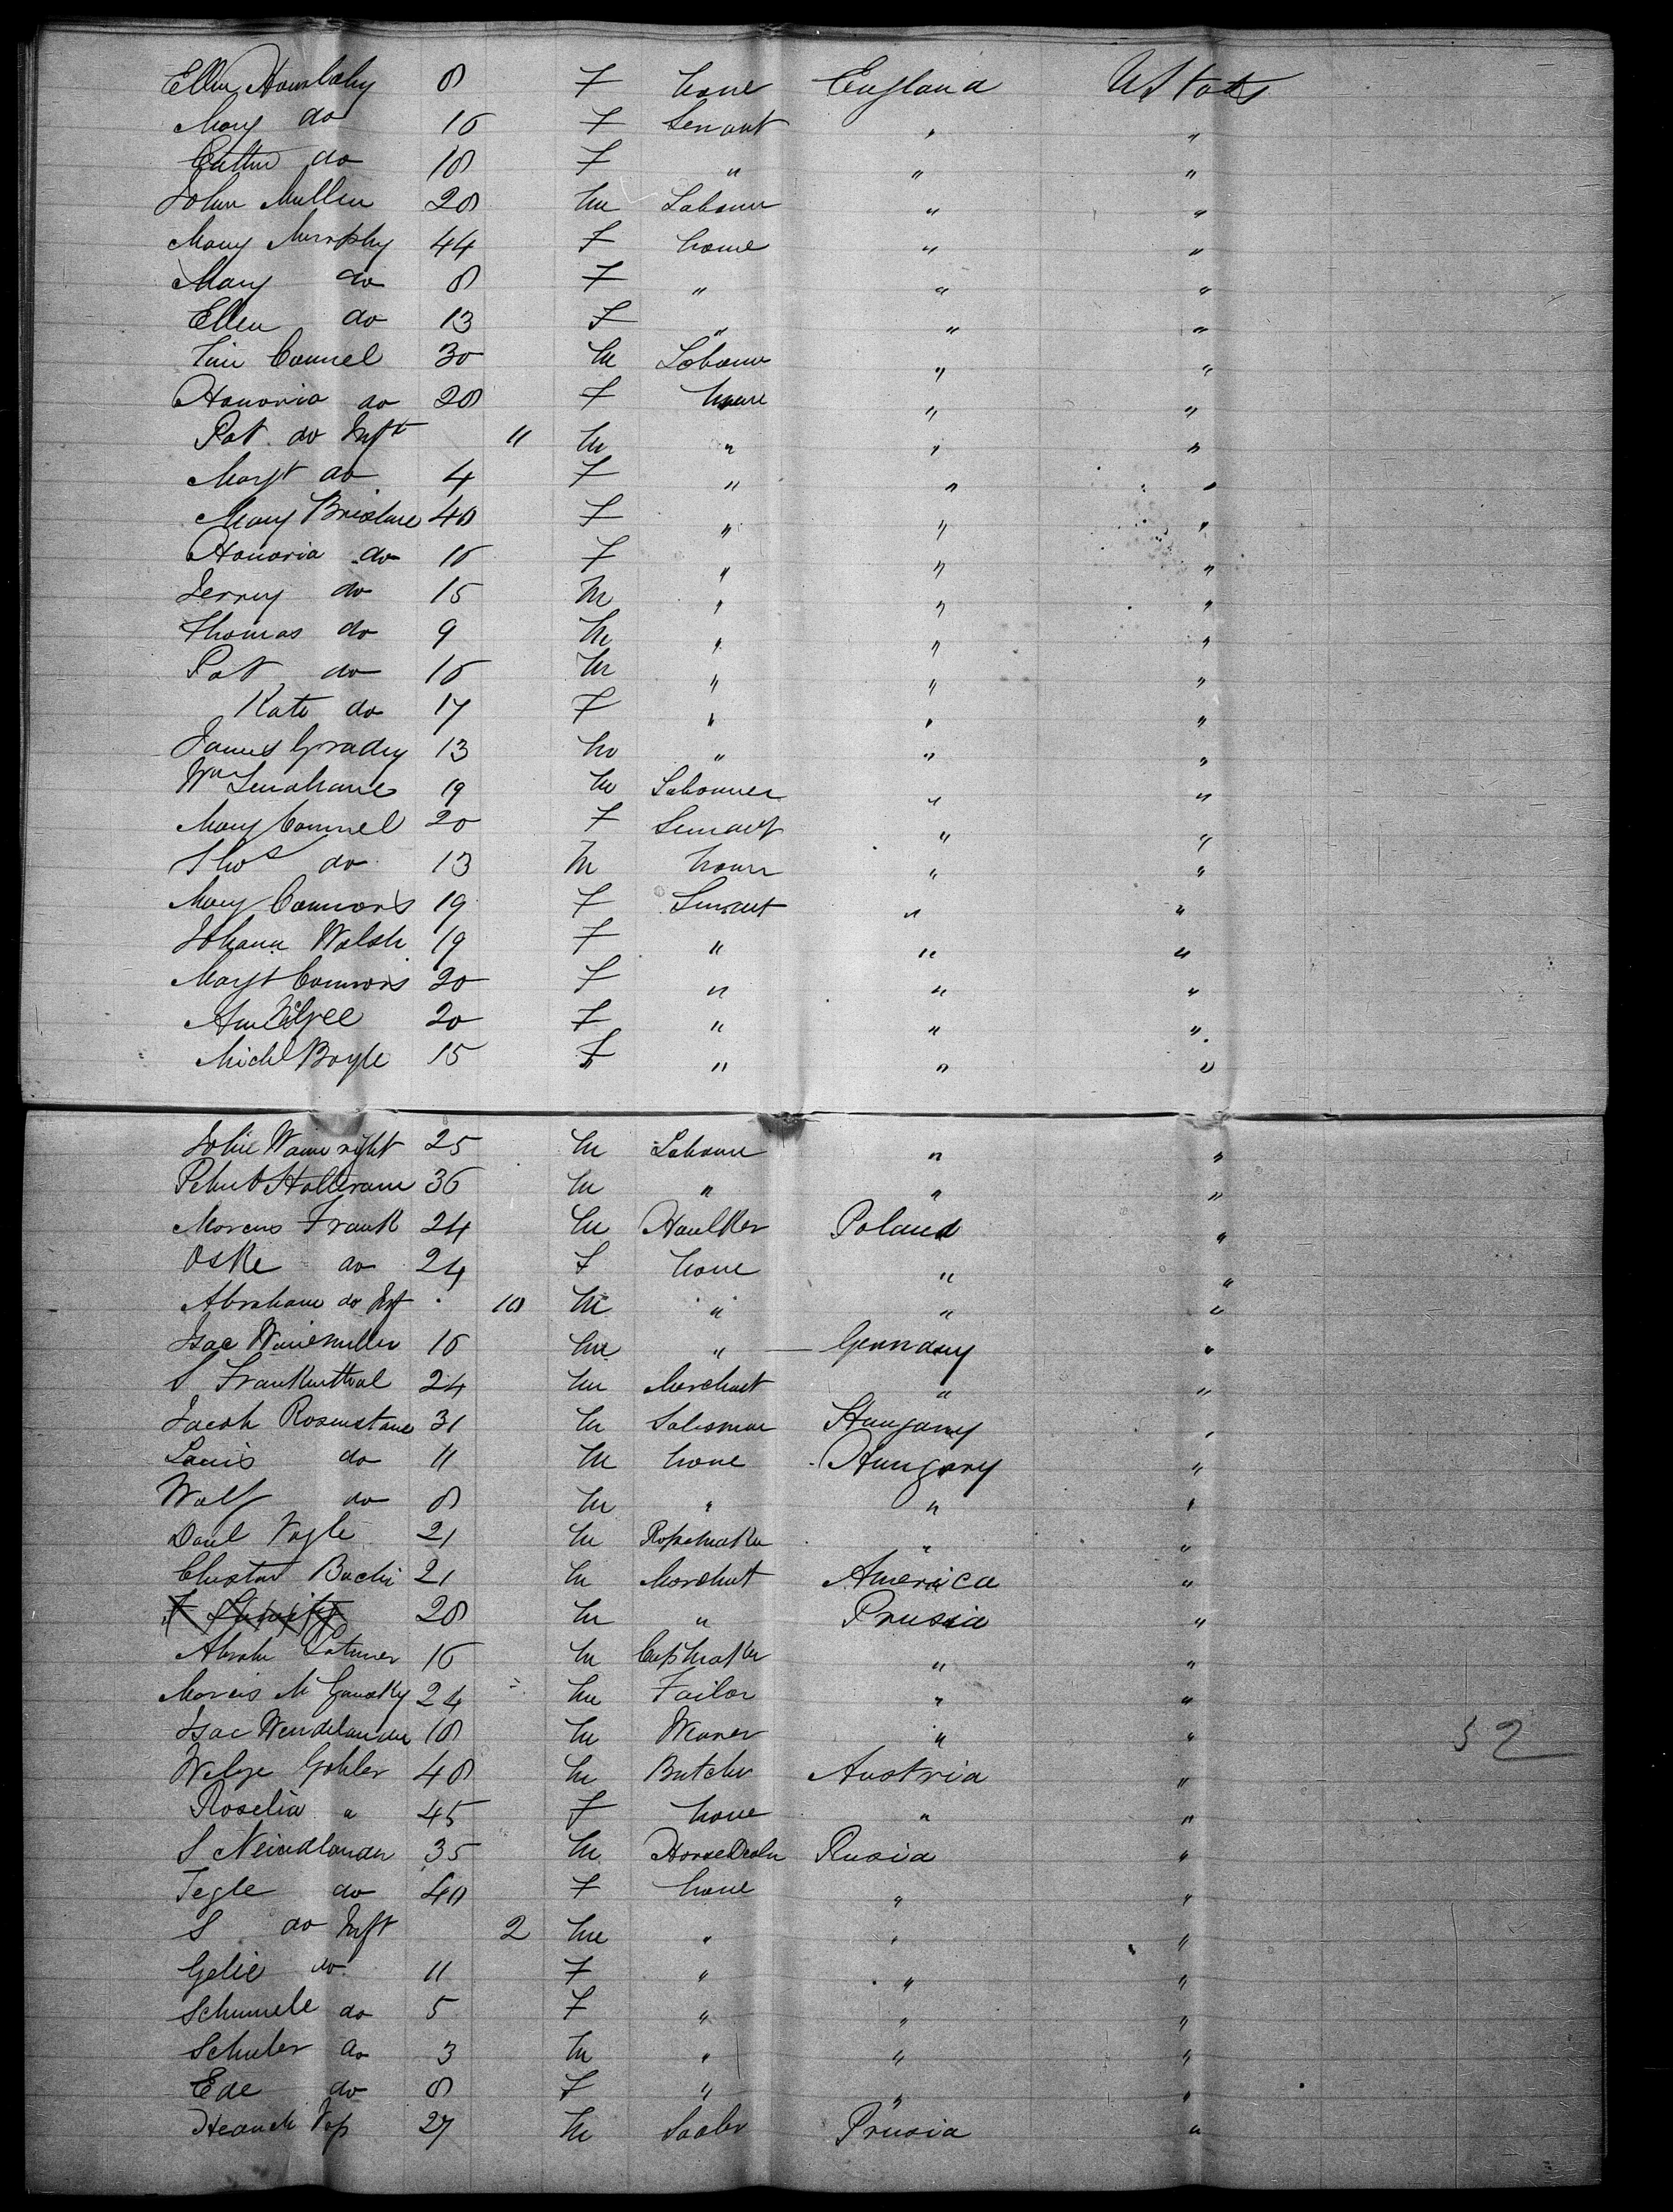 Ellen Hornbaby 8 F none England U States
Mary do 16 F Servant " "
do 18 F " " "
John Mullen 28 m Labourer " "
Mary Murphy 44 F none " "
Mary do 8 F " " "
Ellen do 13 F " " "
Tim Connel 30 m Labourer " "
Honoria do 28 F none " "
Pat do Inft 11 m " " "
Margt do 4 F " " "
Mary 48 F " " "
Honoria do 16 F " " "
Jerry do 15 m " " "
Thomas do 9 m " " "
Pat do 16 m " " "
Kate do 17 F " " "
James Grady 13 m " " "
Wm Lenahane 19 m Labourer " "
Mary Connel 20 F Servant " "
Thos do 13 m none " "
Mary Connors 19 F Servant " "
Johana Walsh 19 F " " "
Margt Connors 20 F " " "
20 F " " "
Michl Boyle 15 F " " "
John Wainwright 25 m Labourer " "
Halleran 36 m " " "
Morcus Frank 24 m Haulker Poland "
Oske do 24 F none " "
Abraham do Inft 10 m " " "
Isac 16 m " Germany "
S Frankenthal 24 m Merchant " "
Jacob Rosenstane 31 m Salesman Hungary "
Louis do 11 m none Hungary "
Wolf do 8 m " " "
Danl Vogle 21 m Ropemaker " "
Bachi 21 m Merchant America "
28 m " Prusia "
Abrahm 16 m Capmaker " "
Morcis M 24 m Tailor " "
Isac Wendelander 18 m Weaver " "
Gohler 48 m Butcher Austria "
Roselia " 45 F none " "
S Neindlander 35 m HorseDealer Rusia "
Tegle do 40 F none " "
S do Inft 2 m " " "
Gelie do 11 F " " "
Schumele do 5 F " " "
Schuler do 3 m " " "
Ede do 8 F " " "
27 m Prusia "
52